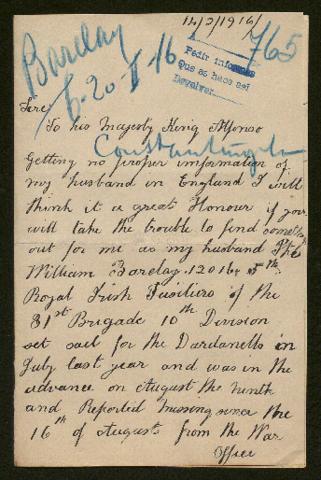 14/2/1916
Barclay
765
6-20-II-16
Pedir informes
Que se hace así
Devolver
Sire,
To his Majesty King Alfonso
Constantinople
Getting no proper information of
my husband in England I will
think it a great Honour if you
will take the trouble to find
out for me as my husband Pte
William Barclay. 12016. 5th.
Royal Irish Fusiliers of the
31st Brigade 10th Division
set sail for the Dardanells in
July last year and was in the
advance on August the ninth
and Reported missing since the
16th of Augusts from the War
Office